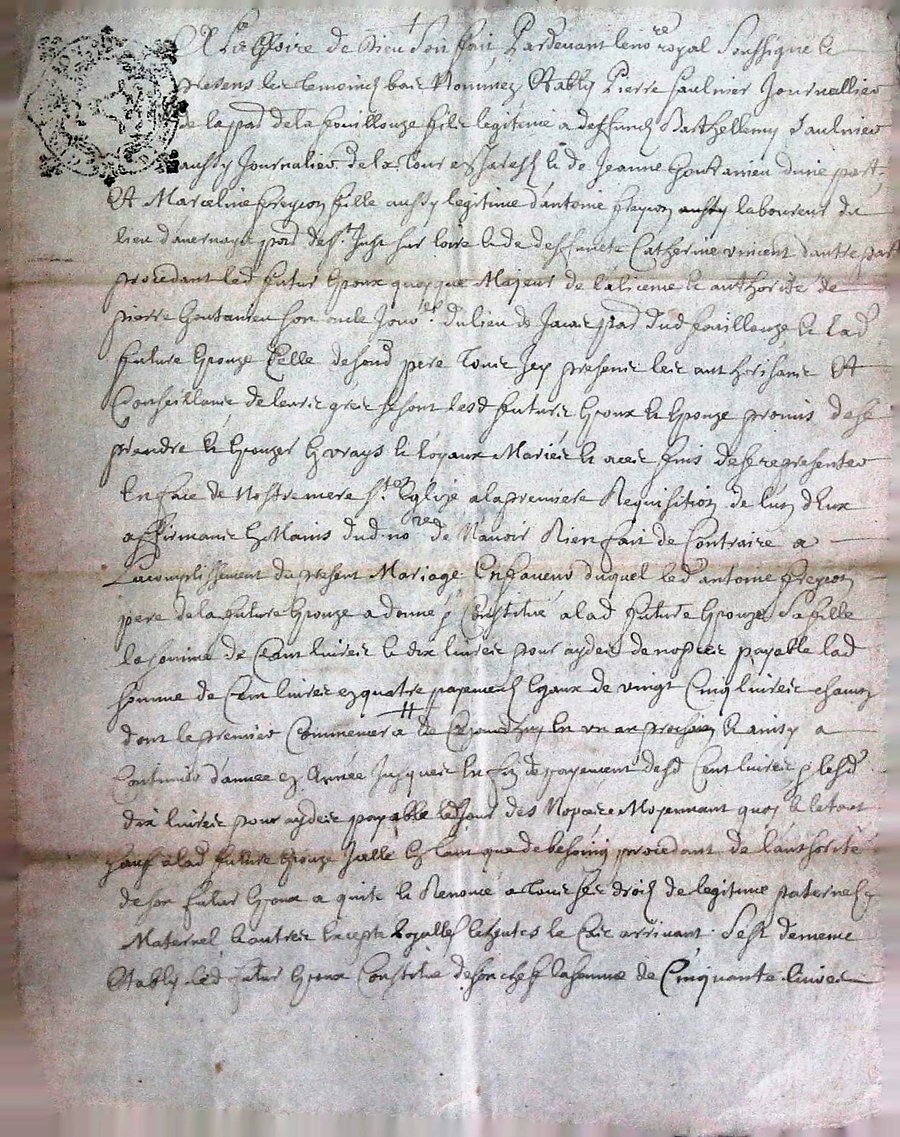 A La Gloire de Dieu soit fait Pardevant le no.re royal soussigné &
presens les temoins bas nommez Etably Pierre Faulnier Journallier
de la par. de la fouillouze fils legitime a deffunct Barthellemy Faulnier
aussy Journalier de la Tour & de Jeanne Goutanieu d'une part,
Et Marceline freycon fille aussy legitime d'antoine freycon aussy laboureur du
lieu d'auernay par. de St. Just sur loire & de deffuncte Catherine vincent d'autre part
procedant led futur Epoux quoyque Majeur de la licence & authorité de
pierre Goutanieu son oncle Jour.el du lieu de par. dud fouillouze & lad
future Epouze Celle de sond pere Tous Icy presents les authorisans Et
Conseillans de leurs grez se sont lesd futurs Epoux & Epouze promis de se
prendre & Epouzer En vrays & loyaux Mariés & a ces fins de se representer
En face de Nostre mere Ste. Eglize a la premiere Requisition de l'un d'Eux
affirmans Es Mains dud no.re de N'auoir Rien fait de Contraire a
L'acomplissement du present Mariage En faueur duquel led antoine freycon
pere de la future Epouze a donné & Constitué a lad future Epouze Sa fille
la somme de Cent liures & dix liures pour ayder de nopces payable lad
somme de Cent liures en quatre payements Egaux de vingt Cinq liures chacun
dont le premier Commencera de En un an prochain & ainsy a
Continuer d'annee en Année Jusques En fin de payement desd Cent liures & lesd
dix liures pour ayder payable le Jour des Nopces Moyennant quoy & le tout
sauf a lad future Epouze Icelle En tant que de besoing procedant de l'authorité
de son futur Epoux a quité & Renoncé a Tous ses droits de legitime paternel &
Maternel & autres Excepté Loyalles le Cas arriuant S'est de meme
Etably led futur Epoux Constitué de son chef la somme de Cinquante liures